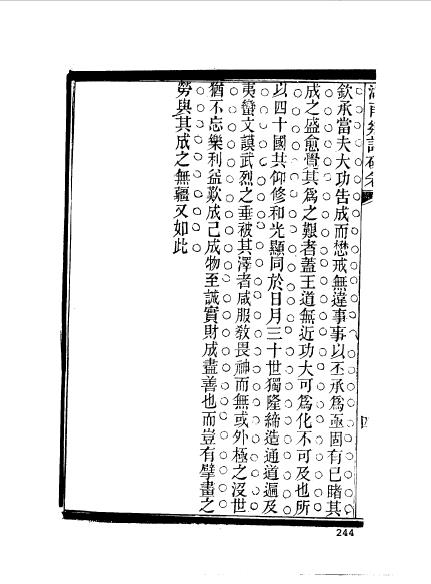 欽承當夫大功告成而懋戒無違事事以丕承爲亟固有已睹其
成之盛愈覺其爲之艱者蓋王道無近功大可爲化不可及也所
以四十國共仰修和光顯同於日月三十世獨隆締造通道遍及
夷蠻文謨武烈之垂被其澤者咸服教畏神而無或外極之沒世
猶不忘樂利益歎成己成物至誠實財成盡善也而豈有擘畫之
勞與其成之無疆又如此
244